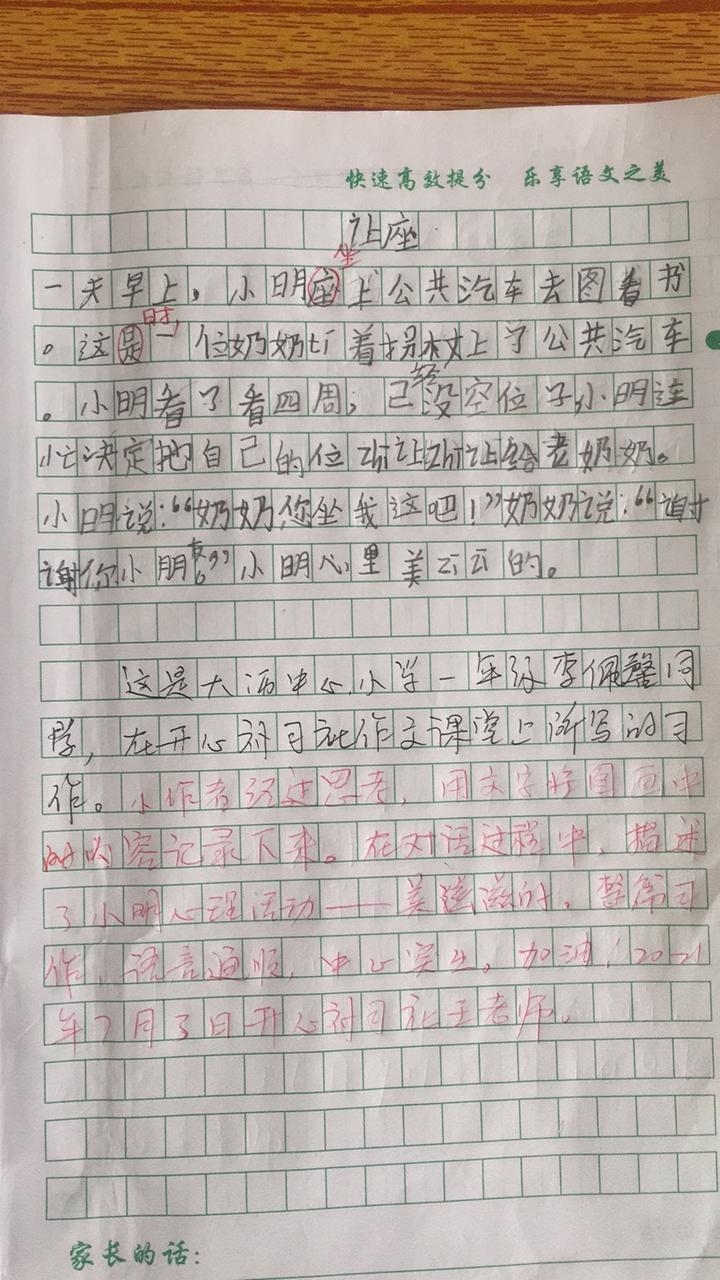 快速高效提分 乐享语文之美
让座
坐
一天早上，小明座上公共汽车去图看书
时，
。这是一位奶奶拄着拐杖上了公共汽车
经
。小明看了看四周；已没空位子，小明连
忙决定把自己的位让让给老奶奶。
小明说：“奶奶，您坐我这吧！”奶奶说：“谢
谢你小朋友。”小明心里美云云的。
这是大沥中心小学一年级李佩馨同
学，在开心对习社作文课堂上所写的习
作。小作者经过思考，用文字将图画中
的内容记录下来。在对话过程中，描述
了小明心理活动——美滋滋的。整篇习
作，语言通顺，中心突出。加油！2021
年7月3日开心对习社王老师。
家长的话：